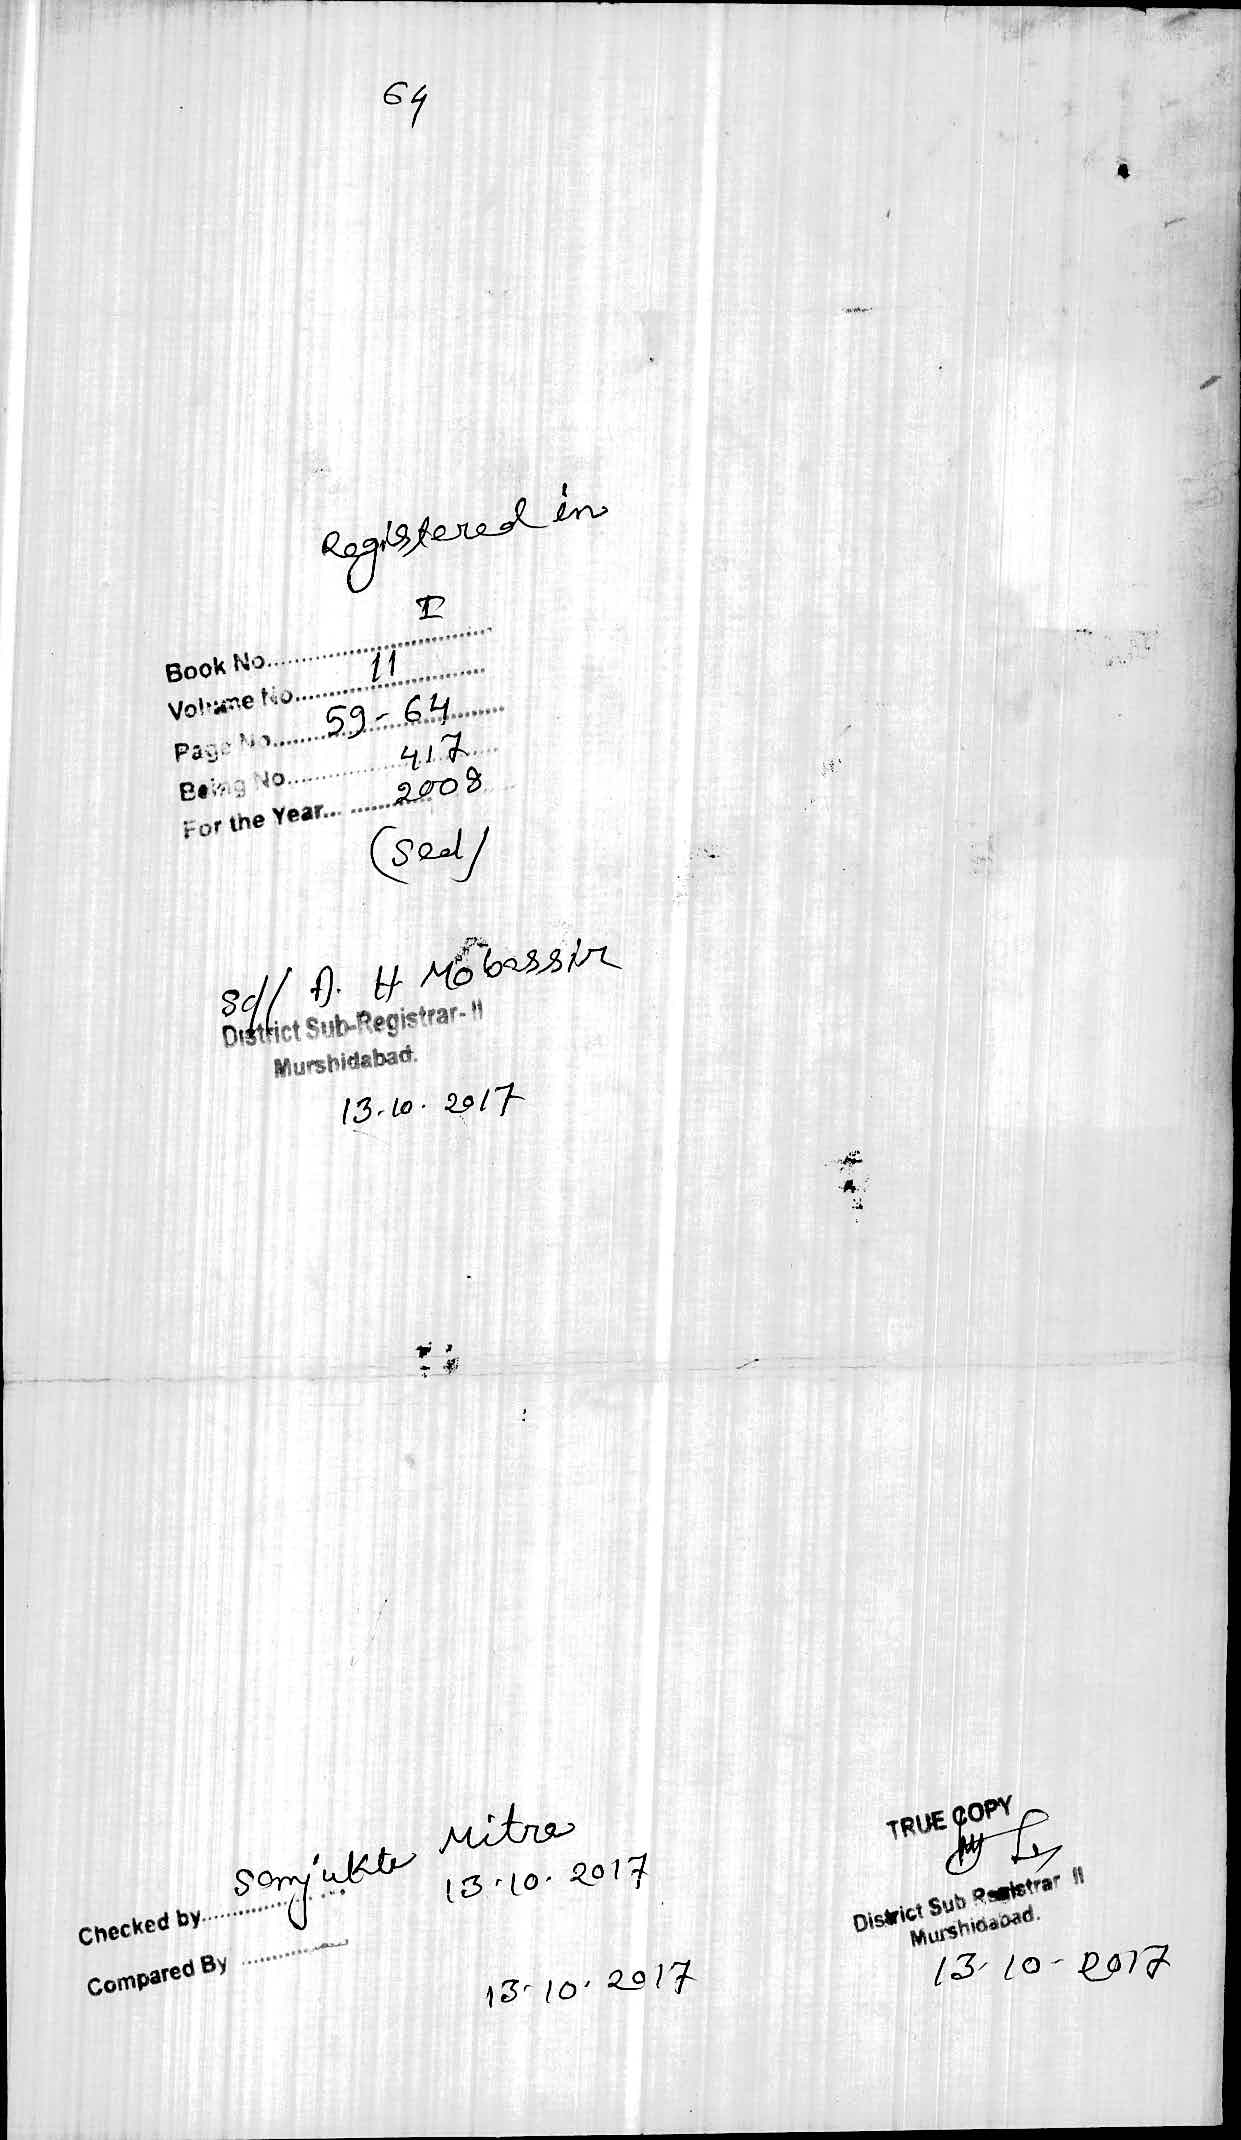 64
Registered in
Book No............ I
Volume No............ 11
Page No............ 59-64
Being No............ 417
For the Year............ 2008
(Sed/
Sd// A. H Mobassir
District Sub-Registrar-II
Murshidabad.
13.10.2017
Checked by............ Samjukta Mitra
13.10.2017
Compared By ............
13.10.2017
TRUE COPY
District Sub Registrar II
Murshidabad.
13-10-2017